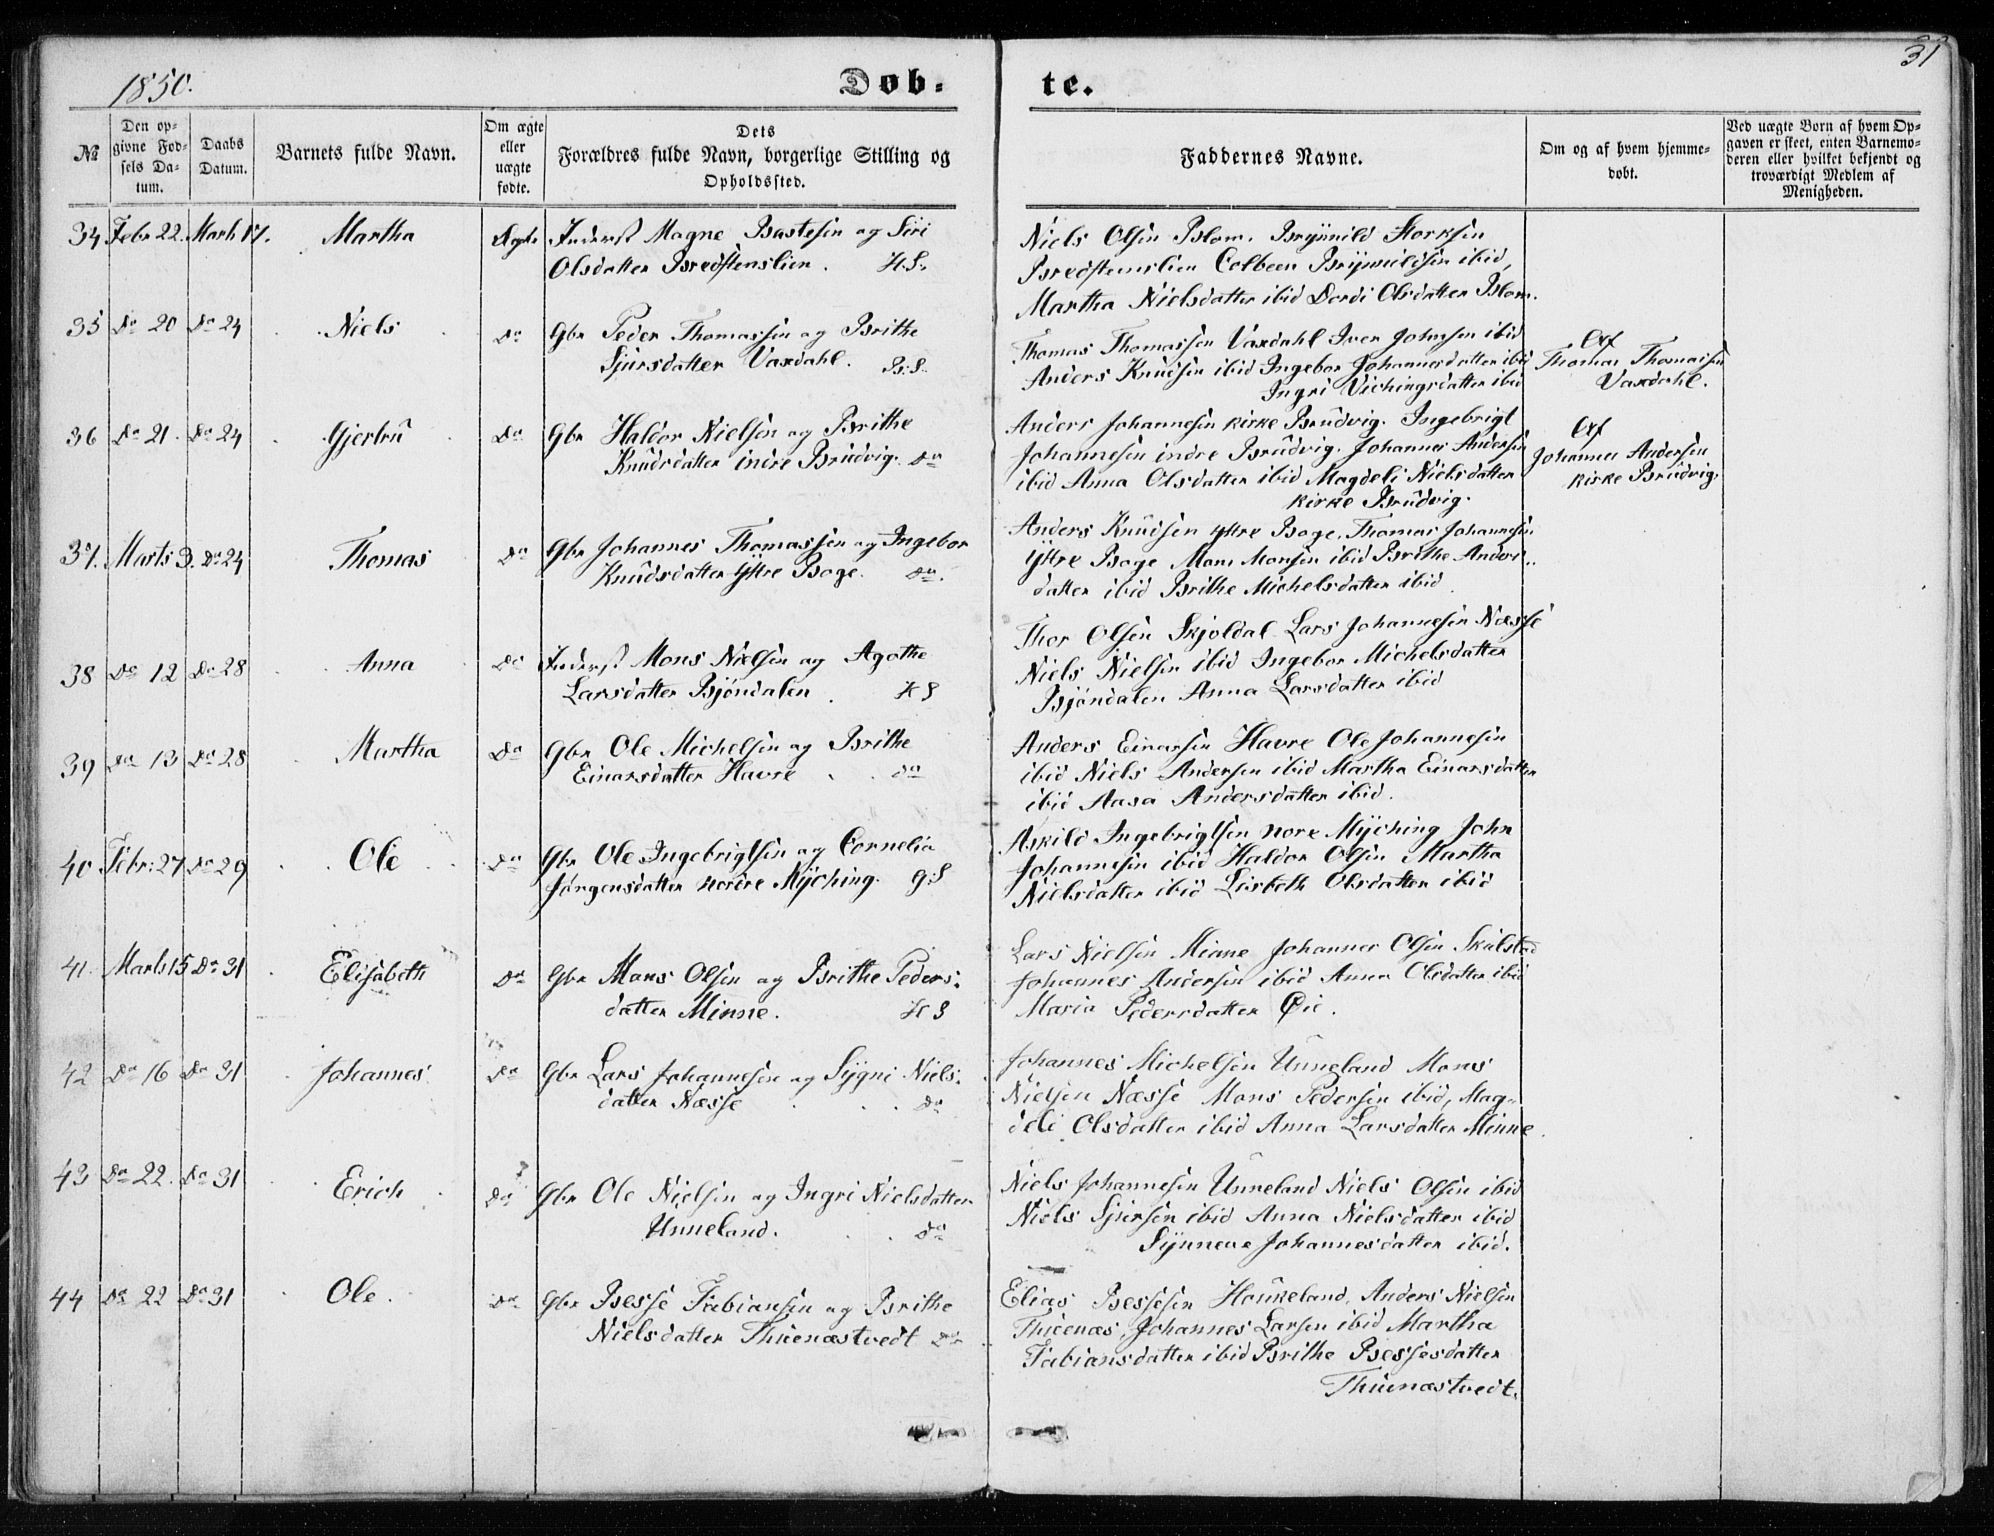 1850.
Døb-
te.
31
No
Den op-
givne Fød-
sels Da-
tum.
Daabs
Datum.
Barnets fulde Navn.
Om ægte
eller
uægte
fødte.
Dets
Forældres fulde Navn, borgerlige Stilling og
Opholdssted.
Faddernes Navne.
Om og af hvem hjemme-
døbt.
Ved uægte Børn af hvem Op-
gaven er skeet, enten Barnemo-
deren eller hvilket bekjendt og
troværdigt Medlem af
Menigheden.
34 Febr 22. Marts 17. Martha Ægte Inderst Magne Bastesen og Siri
Olsdatter Bredstenslien. H.S.
Niels Olsen Blom. Brynnild Storksen
Bredstenslien Colbeen Brynnildsen ibid,
Martha Nielsdatter ibid Dordi Olsdatter Blom.
35 Do 20 Do 24 Niels Do Gbr Peder Thomassen og Brithe
Sjursdatter Vaxdahl. B.S.
Thomas Thomassen Vaxdahl Iver Johnsen ibid
Anders Knudsen ibid Ingebor Johannesdatter ibid
Ingri Vichingsdatter ibid
Af
Thomas Thomassen
Vaxdahl.
36 Do 21. Do 24 Gjertru Do Gbr Haldor Nielsen og Brithe
Knudsdatter indre Brudvig. Do
Anders Johannesen kirke Brudvig. Ingebrigt
Johannesen indre Brudvig. Johannes Andersen
ibid Anna Olsdatter ibid Magdeli Nielsdatter
kirke Brudvig.
Af
Johannes Andersen
kirke Brudvig.
37. Marts 3. Do 24 Thomas Do Gbr Johannes Thomassen og Ingebor
Knudsdatter Ystre Boge. Do.
Anders Knudsen ystre Boge. Thomas Johannesen
Ystre Boge Mons Monsen ibid Brithe Anders-
datter ibid Brithe Michelsdatter ibid.
38 Do 12 Do 28 Anna Do Inderst Mons Nielsen og Agathe
Larsdatter Bjøndalen. H S
Thor Olsen Skjoldal Lars Johannesen Næsse
Niels Nielsen ibid Ingebor Michelsdatter
Bjøndalen Anna Larsdatter ibid
39 Do 13 Do 28 Martha Do Gbr Ole Michelsen og Brithe
Einarsdatter Havre. do
Anders Einarsen Havre Ole Johannesen
ibid Niels Andersen ibid Martha Einarsdatter
ibid Aasa Andersdatter ibid.
40 Febr: 27 Do 29 Ole Do Gbr Ole Ingebrigtsen og Cornelia
Jørgensdatter nordre Myching. G:S
Askild Ingebrigtsen nore Myching John
Johannesen ibid Haldor Olsen Martha
Nielsdatter ibid Lisbeth Olsdatter ibid
41. Marts 15 Do 31 Elisabeth Do Gbr Mons Olsen og Brithe Peders-
datter Minne. H S
Lars Nielsen Minne Johannes Olsen Skulstad
Johannes Andersen ibid Anna Olsdatter ibid
Maria Pedersdatter Øie.
42 Do 16 Do 31 Johannes Do Gbr Lars Johannesen og Sygni Niels-
datter Næsse. Do
Johannes Michelsen Unneland Mons
Nielsen Næsse Mons Pedersen ibid, Mag-
deli Olsdatter ibid Anna Larsdatter Minne.
43 Do 22. Do 31 Erich Do Gbr Ole Nielsen og Ingri Nielsdatter
Unneland. Do
Niels Johannesen Unneland Niels Olsen ibid
Niels Sjursen ibid Anna Nielsdatter ibid
Synneve Johannesdatter ibid.
44 Do 22 Do 31 Ole. Do Gbr Besse Fabiansen og Brithe
Nielsdatter Thuenæstvedt Do
Elias Bessesen Houkeland. Anders Nielsen
Thuenæs, Johannes Larsen ibid Martha
Fabiansdatter ibid Brithe Bessesdatter
Thunæstvedt.